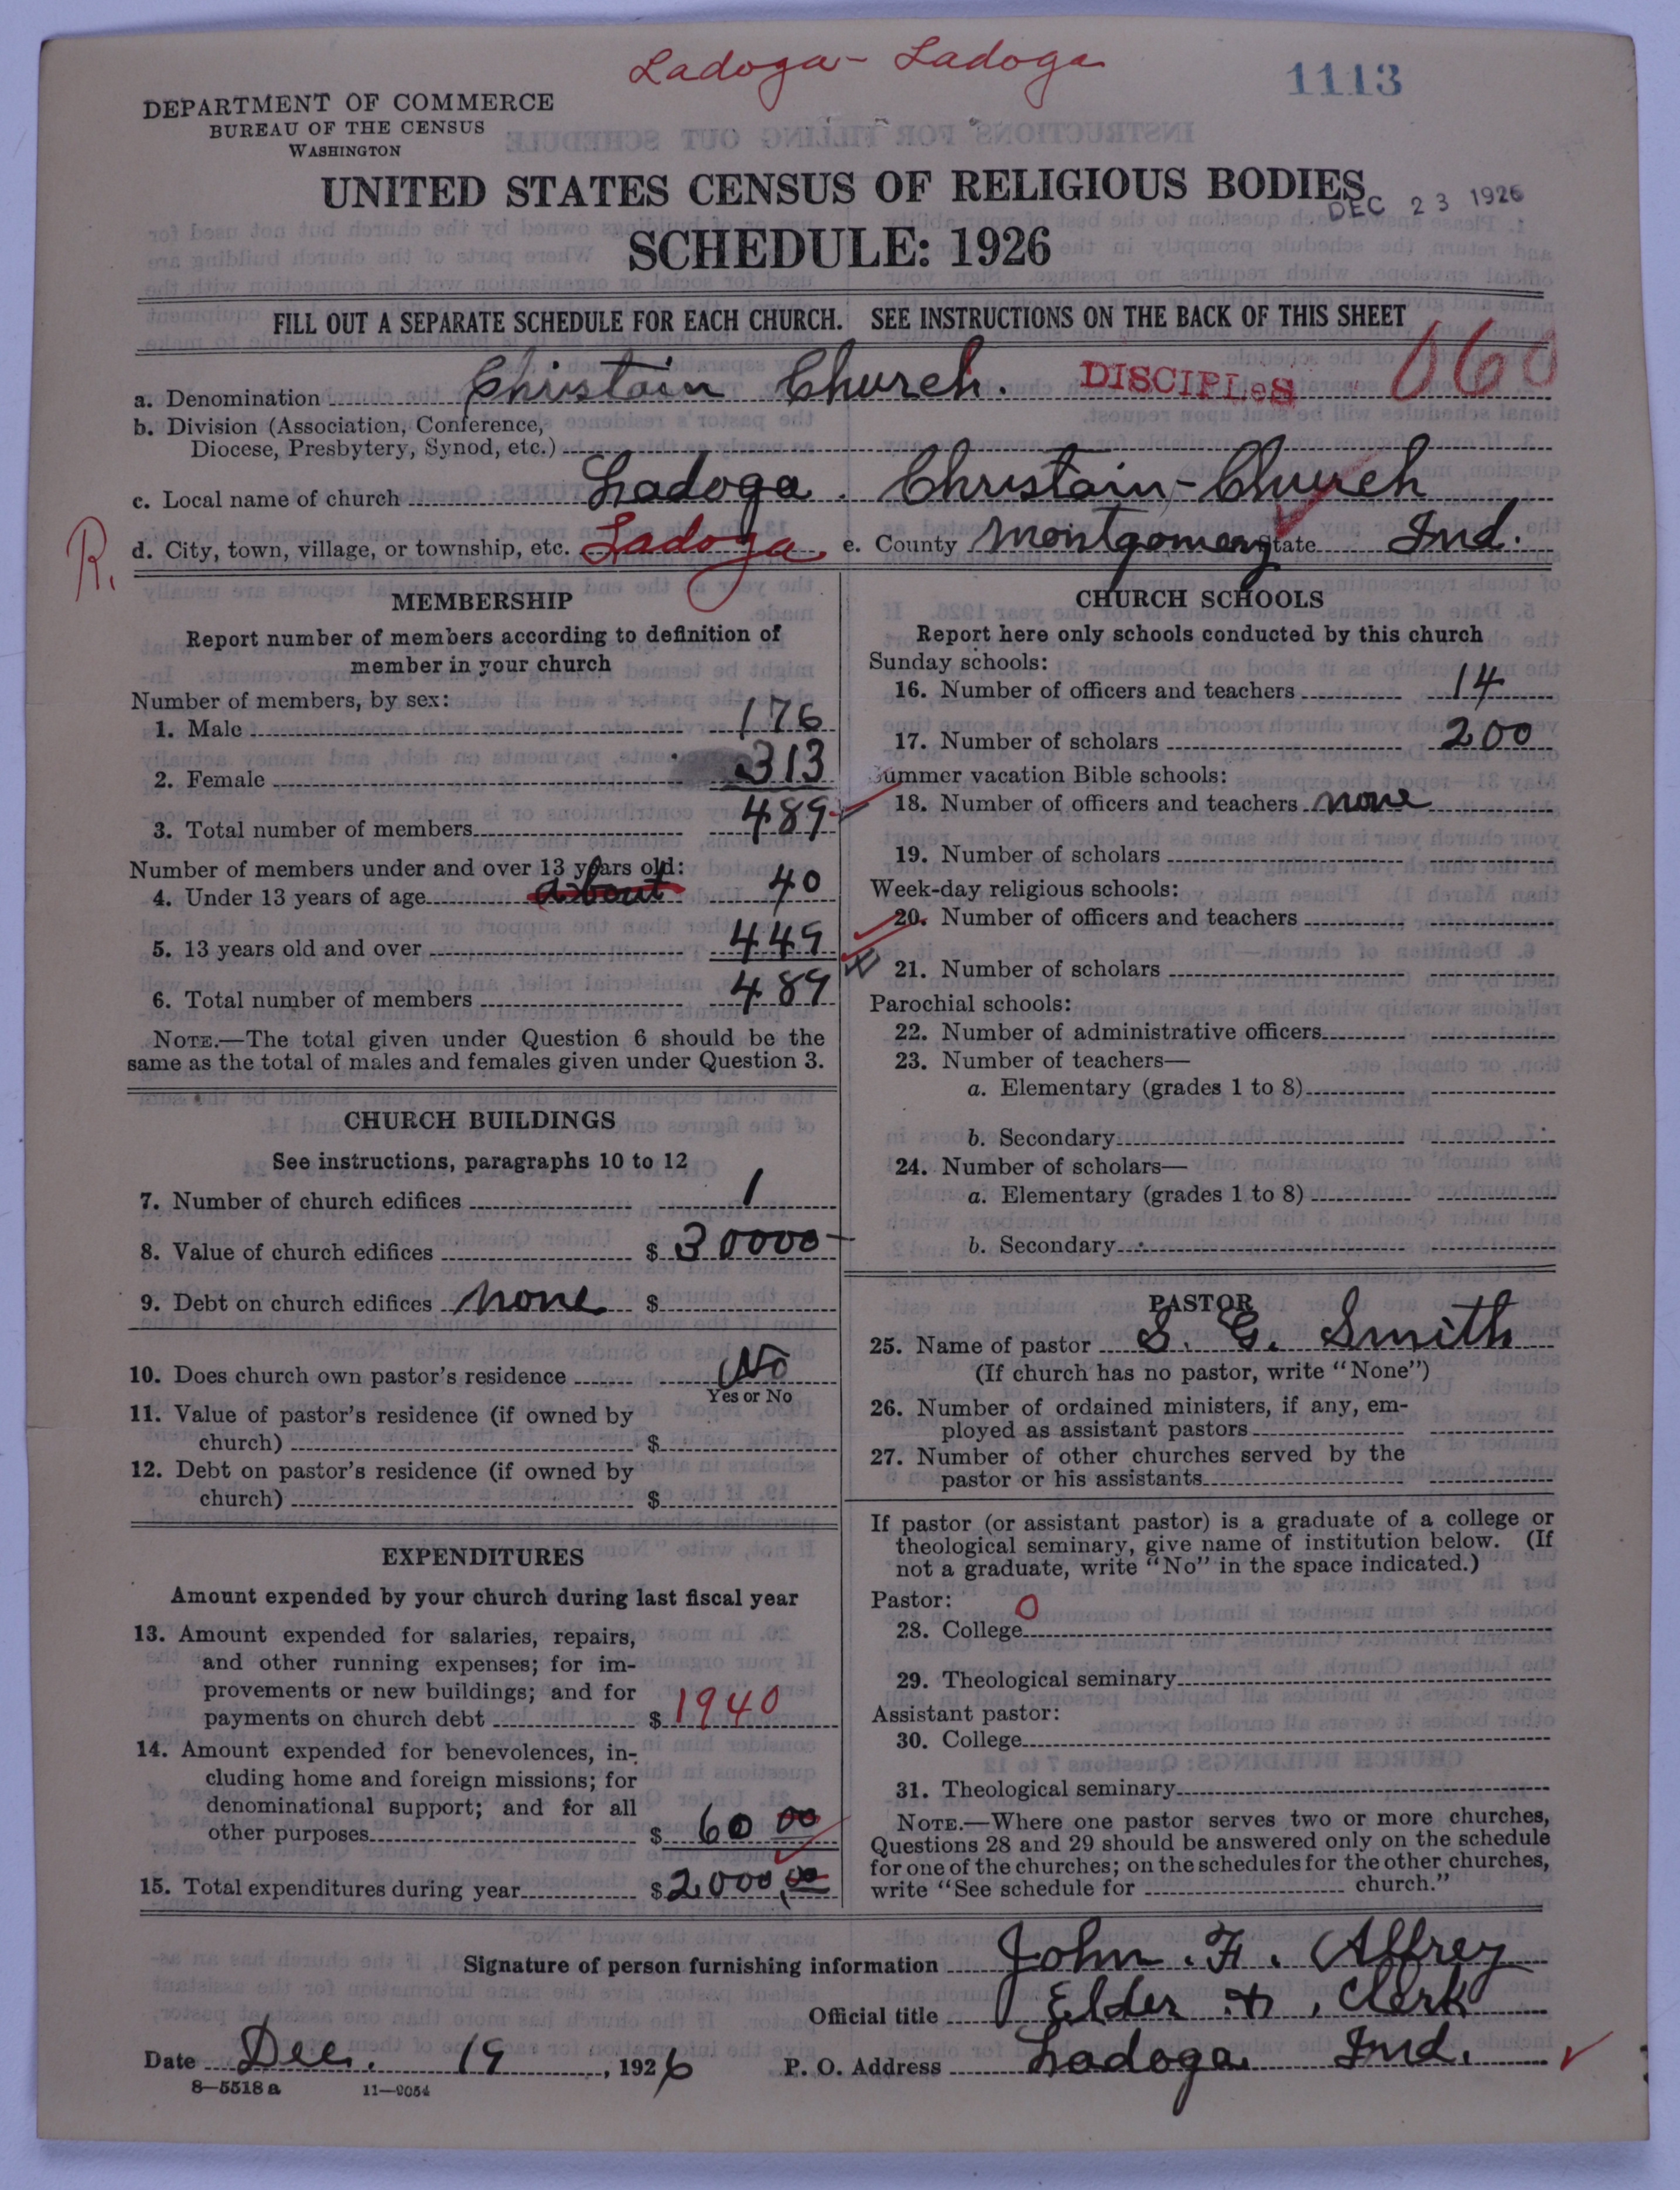 Ladoga - Ladoga
1113
DEPARTMENT OF COMMERCE
BUREAU OF THE CENSUS
WASHINGTON
UNITED STATES CENSUS OF RELIGIOUS BODIES
DEC 23 1926
SCHEDULE: 1926
FILL OUT A SEPARATE SCHEDULE FOR EACH CHURCH. SEE INSTRUCTIONS ON THE BACK OF THIS SHEET
a. Denomination Christain Church. DISCIPLES 060
b. Division (Association, Conference,
Diocese, Presbytery, Synod, etc.)
c. Local name of church Ladoga. Christain-Church
R. d. City, town, village, or township, etc. Ladoga e. County Montgomery State Ind.
MEMBERSHIP
Report number of members according to definition of
member in your church
Number of members, by sex:
1. Male 176
2. Female 313
3. Total number of members 489
Number of members under and over 13 years old:
4. Under 13 years of age about 40
5. 13 years old and over 449
6. Total number of members 489
NOTE.—The total given under Question 6 should be the
same as the total of males and females given under Question 3.
CHURCH BUILDINGS
See instructions, paragraphs 10 to 12
7. Number of church edifices 1
8. Value of church edifices $ 30000
9. Debt on church edifices none $
10. Does church own pastor's residence No
Yes or No
11. Value of pastor's residence (if owned by
church) $
12. Debt on pastor's residence (if owned by
church) $
EXPENDITURES
Amount expended by your church during last fiscal year
13. Amount expended for salaries, repairs,
and other running expenses; for im-
provements or new buildings; and for
payments on church debt $ 1940
14. Amount expended for benevolences, in-
cluding home and foreign missions; for
denominational support; and for all
other purposes $ 60 00
15. Total expenditures during year $ 2000,00
CHURCH SCHOOLS
Report here only schools conducted by this church
Sunday schools:
16. Number of officers and teachers 14
17. Number of scholars 200
Summer vacation Bible schools:
18. Number of officers and teachers none
19. Number of scholars
Week-day religious schools:
20. Number of officers and teachers
21. Number of scholars
Parochial schools:
22. Number of administrative officers
23. Number of teachers—
a. Elementary (grades 1 to 8)
b. Secondary
24. Number of scholars—
a. Elementary (grades 1 to 8)
b. Secondary
PASTOR
25. Name of pastor S. G. Smith
(If church has no pastor, write "None")
26. Number of ordained ministers, if any, em-
ployed as assistant pastors
27. Number of other churches served by the
pastor or his assistants
If pastor (or assistant pastor) is a graduate of a college or
theological seminary, give name of institution below. (If
not a graduate, write "No" in the space indicated.)
Pastor: 0
28. College
29. Theological seminary
Assistant pastor:
30. College
31. Theological seminary
NOTE.—Where one pastor serves two or more churches,
Questions 28 and 29 should be answered only on the schedule
for one of the churches; on the schedules for the other churches,
write "See schedule for church."
Signature of person furnishing information John. F. Affrey
Official title Elder + , Clerk
Date Dec. 19, 1926 P. O. Address Ladoga Ind.
8—5518 a 11—9054